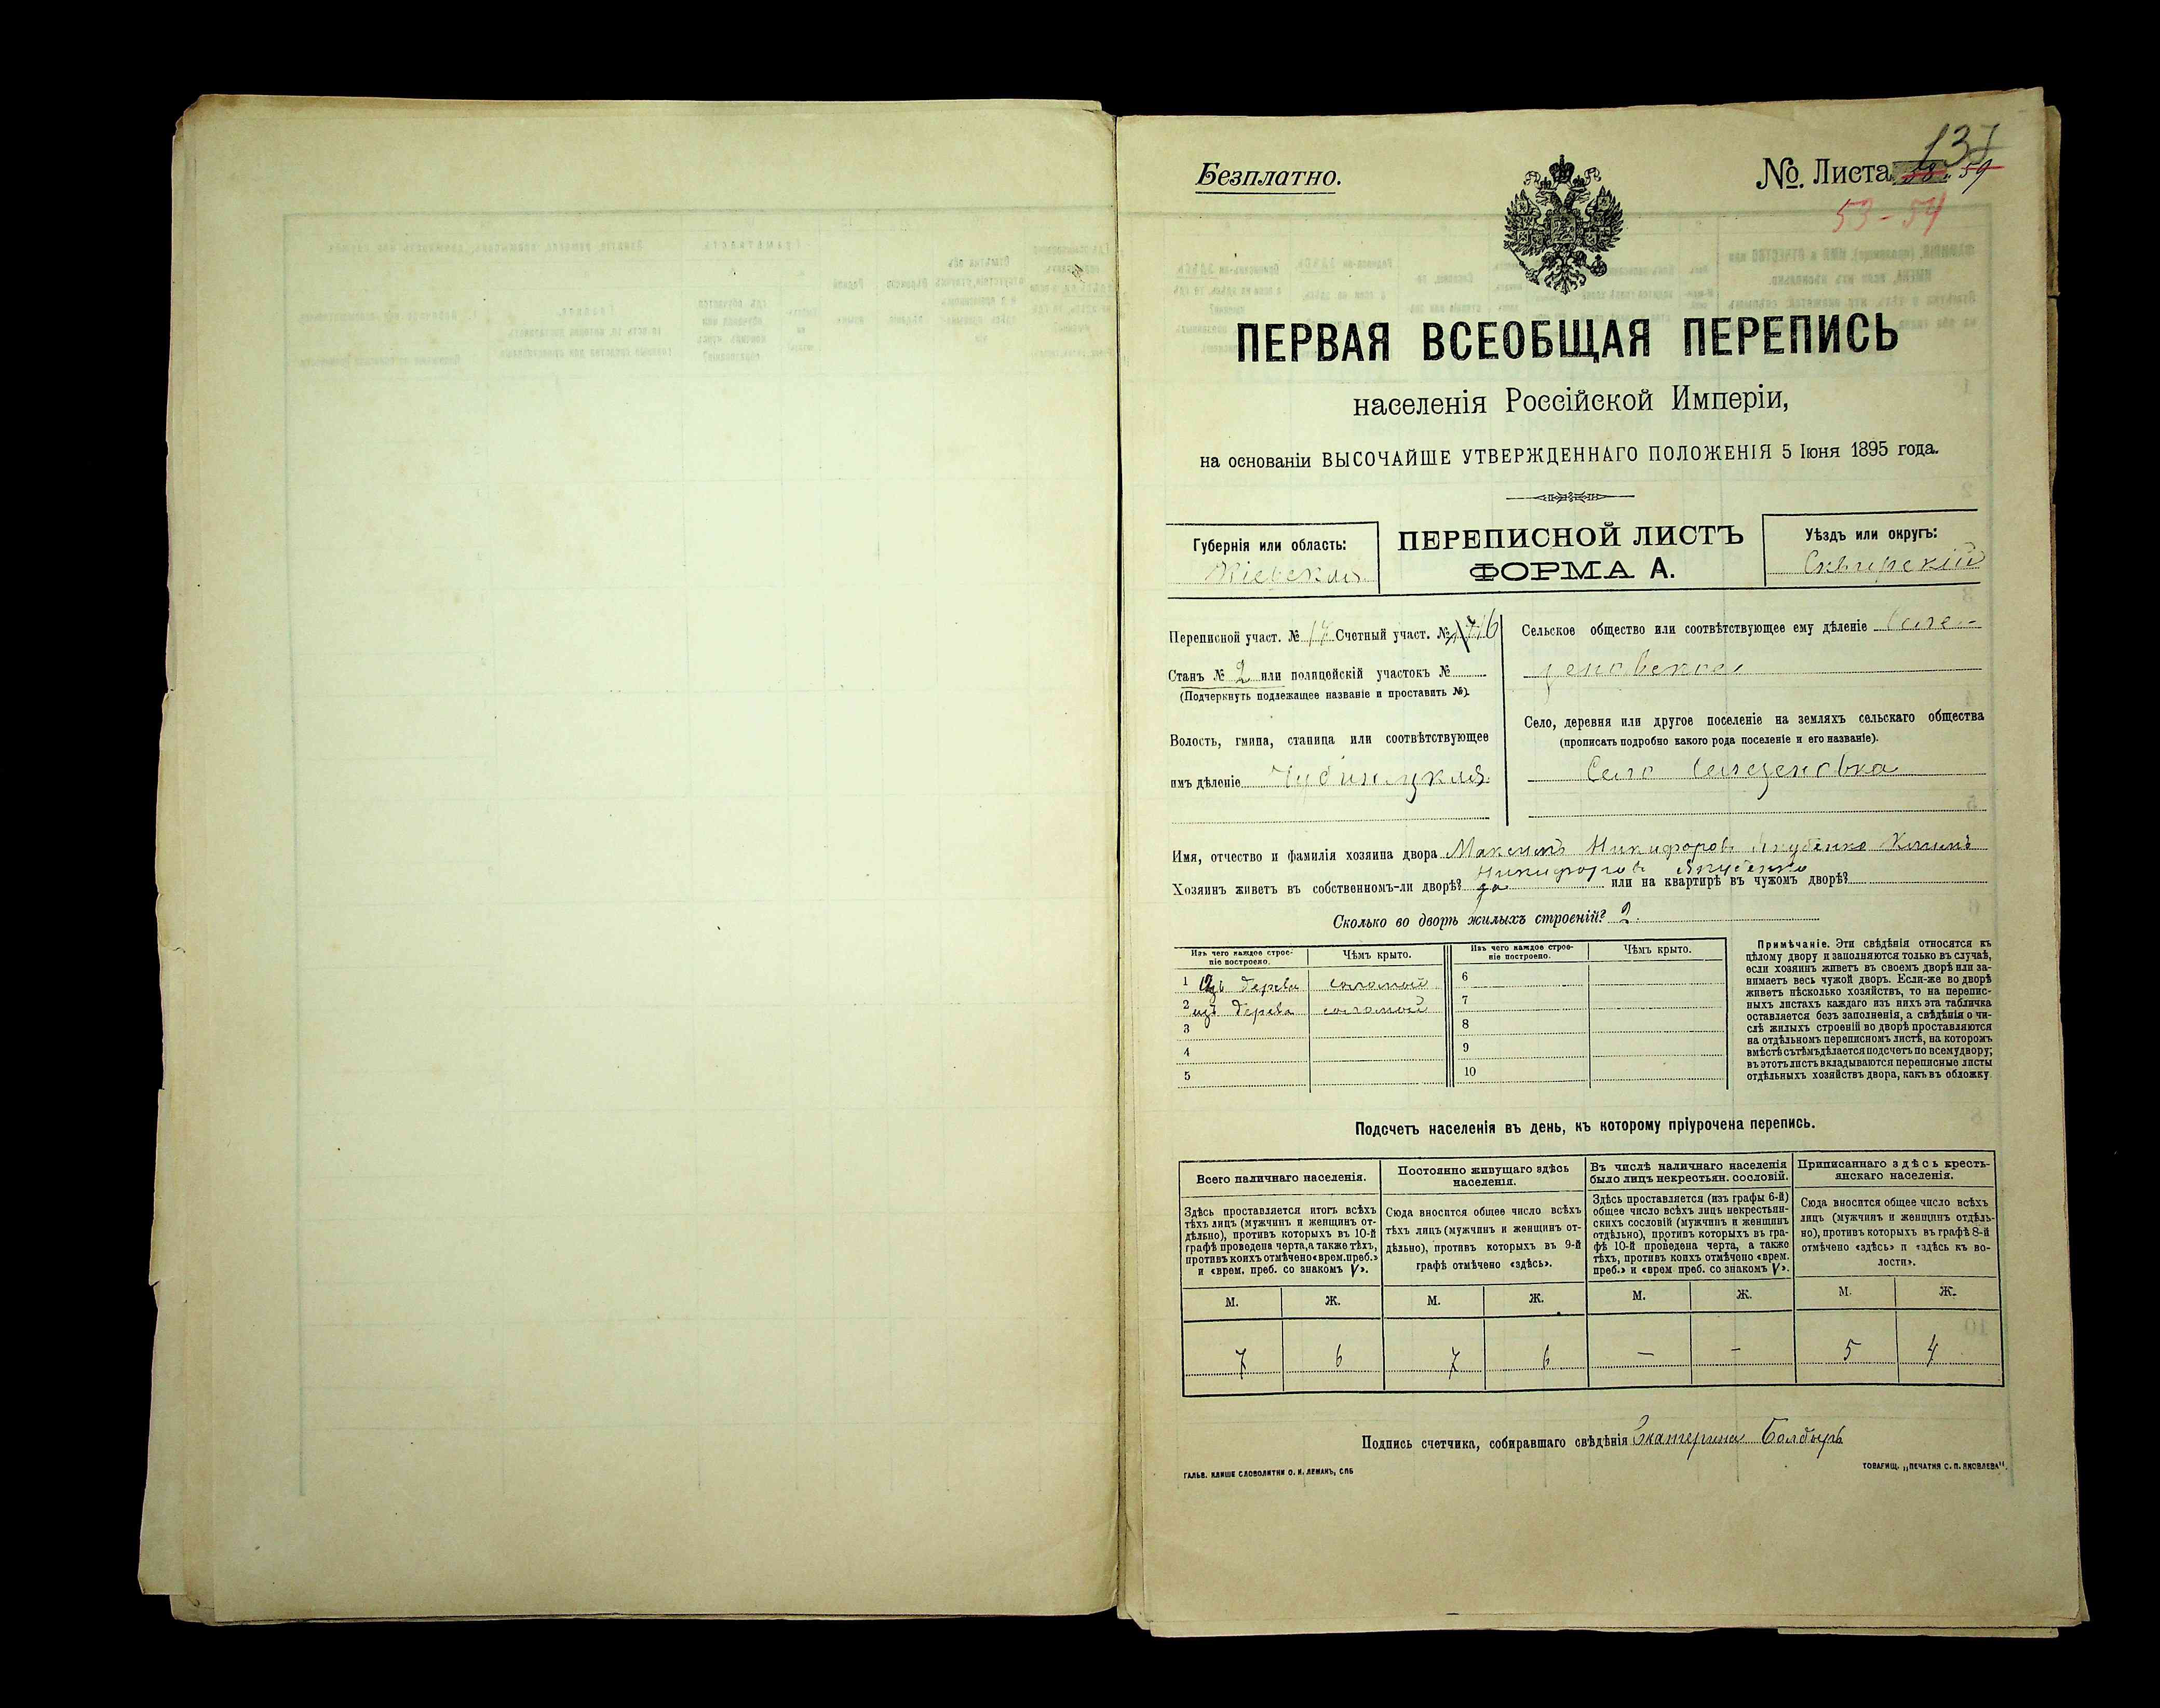 Безплатно.
№. Листа 58 и 59
137
53-54
ПЕРВАЯ ВСЕОБЩАЯ ПЕРЕПИСЬ
населенія Россійской Имперіи,
на основаніи ВЫСОЧАЙШЕ УТВЕРЖДЕННАГО ПОЛОЖЕНІЯ 5 Іюня 1895 года.
Губернія или область:
Кіевская
ПЕРЕПИСНОЙ ЛИСТЪ
ФОРМА А.
Уѣздъ или округъ:
Сквирскій
Переписной участ. № 17 Счетный участ. № 6
Станъ № 2 или полицейскій участокъ №
(Подчеркнуть подлежащее названіе и проставить №).
Волость, гмина, станица или соотвѣтствующее
имъ дѣленіе Чубинецкая
Сельское общество или соотвѣтствующее ему дѣленіе Селе-
зеновское
Село, деревня или другое поселеніе на земляхъ сельскаго общества
(прописать подробно какого рода поселеніе и его названіе).
Село Селезеновка
Имя, отчество и фамилія хозяина двора Максимъ Никифоровъ Якубенко Климъ
Никифоровъ Якубенко
Хозяинъ живетъ въ собственномъ-ли дворѣ? да или на квартирѣ въ чужомъ дворѣ?
Сколько во дворѣ жилыхъ строеній? 2.
Изъ чего каждое строе-
ніе построено.
Чѣмъ крыто.
Изъ чего каждое строе-
ніе построено.
Чѣмъ крыто.
1 изъ дерева соломой
2 изъ дерева соломой
3
4
5
6
7
8
9
10
Примѣчаніе. Эти свѣдѣнія относятся къ
цѣлому двору и заполняются только въ случаѣ,
если хозяинъ живетъ въ своемъ дворѣ или за-
нимаетъ весь чужой дворъ. Если-же во дворѣ
живетъ нѣсколько хозяйствъ, то на перепис-
ныхъ листахъ каждаго изъ нихъ эта табличка
оставляется безъ заполненія, а свѣдѣнія о чи-
слѣ жилыхъ строеній во дворѣ проставляются
на отдѣльномъ переписномъ листѣ, на которомъ
вмѣстѣ съ тѣмъ дѣлается подсчетъ по всему двору;
въ этотъ листъ вкладываются переписные листы
отдѣльныхъ хозяйствъ двора, какъ въ обложку.
Подсчетъ населенія въ день, къ которому пріурочена перепись.
Всего наличнаго населенія.
Здѣсь проставляется итогъ всѣхъ
тѣхъ лицъ (мужчинъ и женщинъ от-
дѣльно), противъ которыхъ въ 10-й
графѣ проведена черта, а также тѣхъ,
противъ коихъ отмѣчено «врем. преб.»
и «врем. преб. со знакомъ V».
Постоянно живущаго здѣсь
населенія.
Сюда вносится общее число всѣхъ
тѣхъ лицъ (мужчинъ и женщинъ от-
дѣльно), противъ которыхъ въ 9-й
графѣ отмѣчено «здѣсь».
Въ числѣ наличнаго населенія
было лицъ некрестьян. сословій.
Здѣсь проставляется (изъ графы 6-й)
общее число всѣхъ лицъ некрестьян-
скихъ сословій (мужчинъ и женщинъ
отдѣльно), противъ которыхъ въ гра-
фѣ 10-й проведена черта, а также
тѣхъ, противъ коихъ отмѣчено «врем.
преб.» и «врем преб. со знакомъ V».
Приписаннаго здѣсь кресть-
янскаго населенія.
Сюда вносится общее число всѣхъ
лицъ (мужчинъ и женщинъ отдѣль-
но), противъ которыхъ въ графѣ 8-й
отмѣчено «здѣсь» и «здѣсь къ во-
лости».
М. Ж. М. Ж. М. Ж. М. Ж.
7 6 7 6 — — 5 4
Подпись счетчика, собиравшаго свѣдѣнія Екатерина Болбырь
ГАЛЬВ. КЛИШЕ СЛОВОЛИТНИ О. И. ЛЕМАНЪ, СПБ
ТОВАРИЩ. „ПЕЧАТНЯ С. П. ЯКОВЛЕВА".